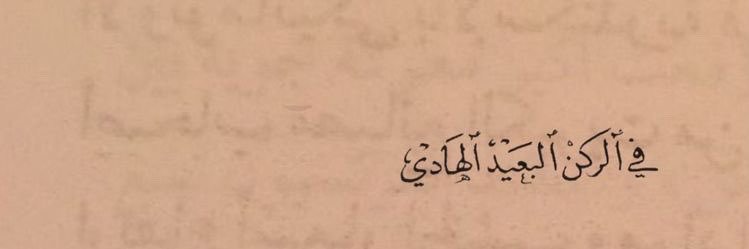 في ٱلركنْ ٱلبعَيْدْ ٱلهَادْيْ